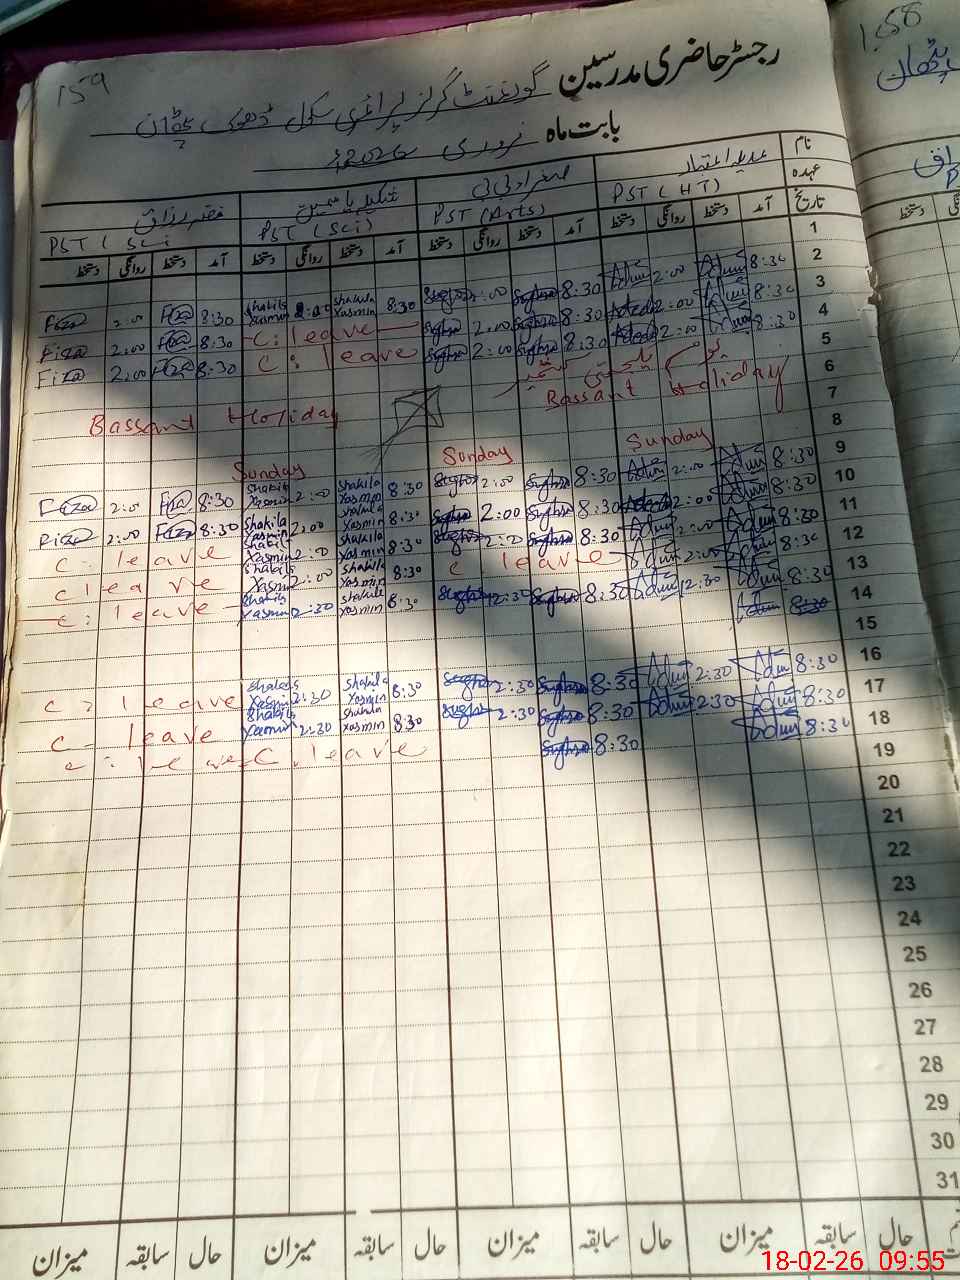 159
158
رجسٹر حاضری مدرسین گورنمنٹ گرلز پرائمری سکول ڈھوک پٹھان
پٹھان
بابت ماہ فروری 2026ء
نام
عہدہ
تاریخ
صغراں بی بی شکیلہ یاسمین
PST (HT) PST (Arts) PST (Sci) PST (Sci
آمد دستخط روانگی دستخط آمد دستخط روانگی دستخط آمد دستخط روانگی دستخط آمد دستخط روانگی دستخط
1
2
Fiza 2:00 Fiza 8:30 Shakila Yasmin 2:00 Shakila Yasmin 8:30 Sughra 2:00 Sughra 8:30 2:00 8:30
3
Fiza 2:00 Fiza 8:30 C: leave Sughra 2:00 Sughra 8:30 2:00 8:30
4
Fiza 2:00 Fiza 8:30 C: leave Sughra 2:00 Sughra 8:30 2:00 8:30
5
یوم یکجہتی کشمیر
6
Bassant Holiday Bassant Holiday
7
8
Sunday Sunday Sunday
9
Fiza 2:00 Fiza 8:30 Shakila Yasmin 2:00 Shakila Yasmin 8:30 Sughra 2:00 Sughra 8:30 2:00 8:30
10
Fiza 2:00 Fiza 8:30 Shakila Yasmin 2:00 Shakila Yasmin 8:30 Sughra 2:00 Sughra 8:30 2:00 8:30
11
C: leave Shakila Yasmin 2:00 Shakila Yasmin 8:30 Sughra 2:00 Sughra 8:30 2:00 8:30
12
C leave Shakila Yasmin 2:00 Shakila Yasmin 8:30 C leave 2:00 8:30
13
C: leave Shakila Yasmin 12:30 Shakila Yasmin 8:30 Sughra 12:30 Sughra 8:30 12:30 8:30
14
8:30
15
16
C: leave Shakila Yasmin 2:30 Shakila Yasmin 8:30 Sughra 2:30 Sughra 8:30 2:30 8:30
17
C- leave Shakila Yasmin 2:30 Shakila Yasmin 8:30 Sughra 2:30 Sughra 8:30 2:30 8:30
18
C: leave C. leave Sughra 8:30 8:30
19
20
21
22
23
24
25
26
27
28
29
30
31
حال سابقہ میزان حال سابقہ میزان حال سابقہ میزان حال سابقہ میزان
18-02-26 09:55